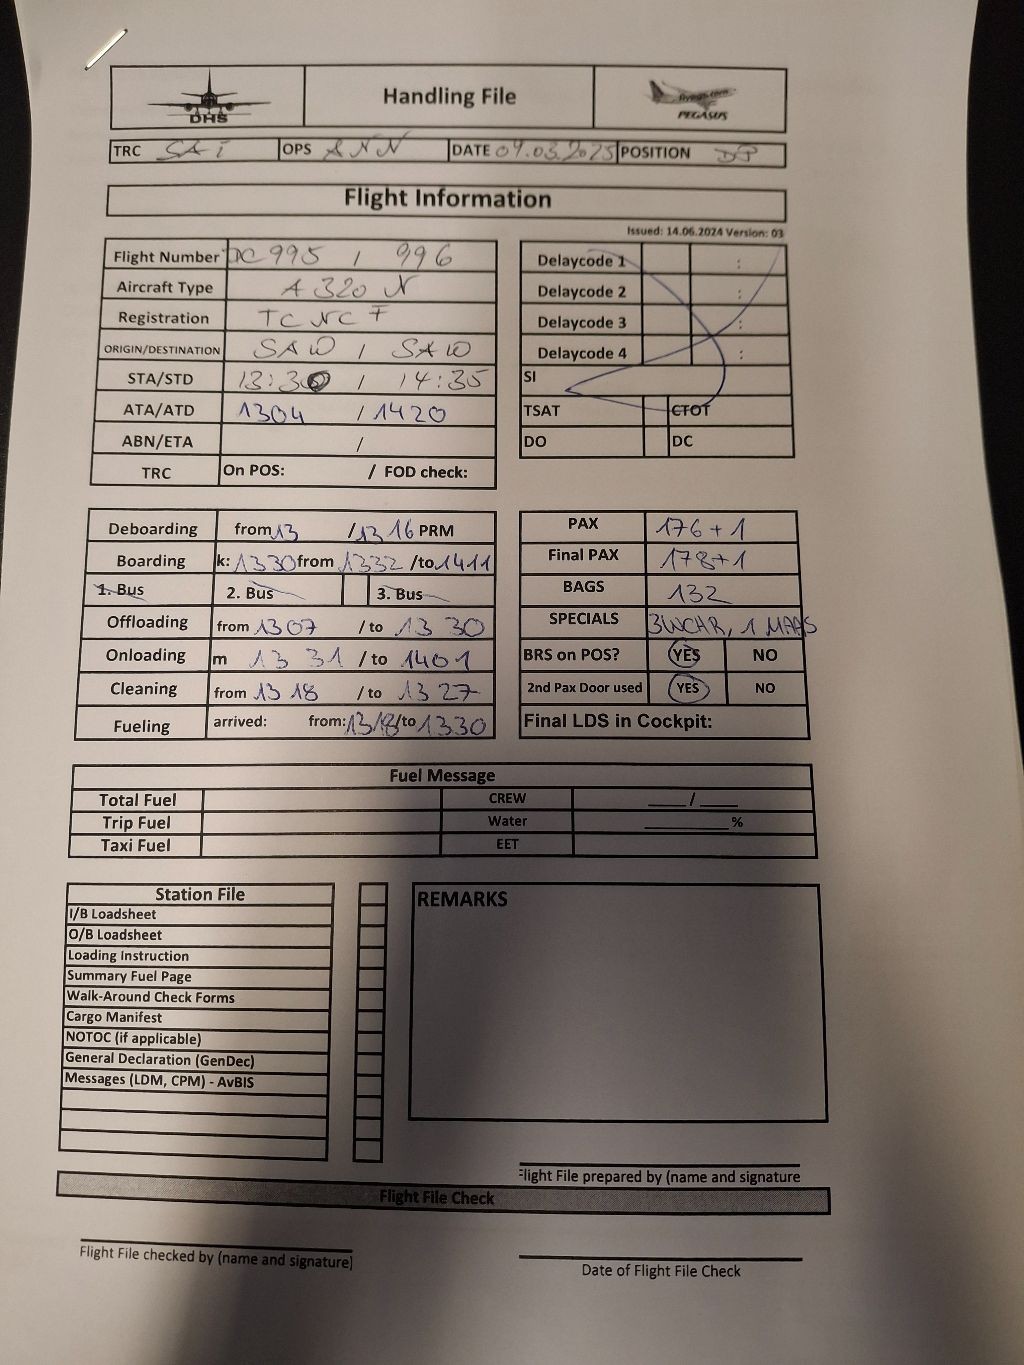 DHS
Handling File
flypgs.com
PEGASUS
TRC SAI OPS ANN DATE 09.03.2025 POSITION
Flight Information
Issued: 14.06.2024 Version: 03
Flight Number PC 995 / 996
Aircraft Type A 320 N
Registration TC NC F
ORIGIN/DESTINATION SAW / SAW
STA/STD 13:30 / 14:35
ATA/ATD 1304 / 1420
ABN/ETA /
TRC On POS: / FOD check:
Delaycode 1 :
Delaycode 2 :
Delaycode 3 :
Delaycode 4 :
SI
TSAT CTOT
DO DC
Deboarding from 13 / 13 16 PRM
Boarding k: 1330 from 1332 /to 1411
1. Bus 2. Bus 3. Bus
Offloading from 1307 / to 13 30
Onloading m 13 31 / to 1401
Cleaning from 13 18 / to 13 27
Fueling arrived: from: 1318 /to 1330
PAX 176 + 1
Final PAX 178+1
BAGS 132
SPECIALS 3WCHR, 1 MAAS
BRS on POS? YES NO
2nd Pax Door used YES NO
Final LDS in Cockpit:
Fuel Message
Total Fuel CREW ____/____
Trip Fuel Water ________%
Taxi Fuel EET
Station File
I/B Loadsheet
O/B Loadsheet
Loading Instruction
Summary Fuel Page
Walk-Around Check Forms
Cargo Manifest
NOTOC (if applicable)
General Declaration (GenDec)
Messages (LDM, CPM) - AvBIS
REMARKS
Flight File prepared by (name and signature
Flight File Check
Flight File checked by (name and signature)
Date of Flight File Check